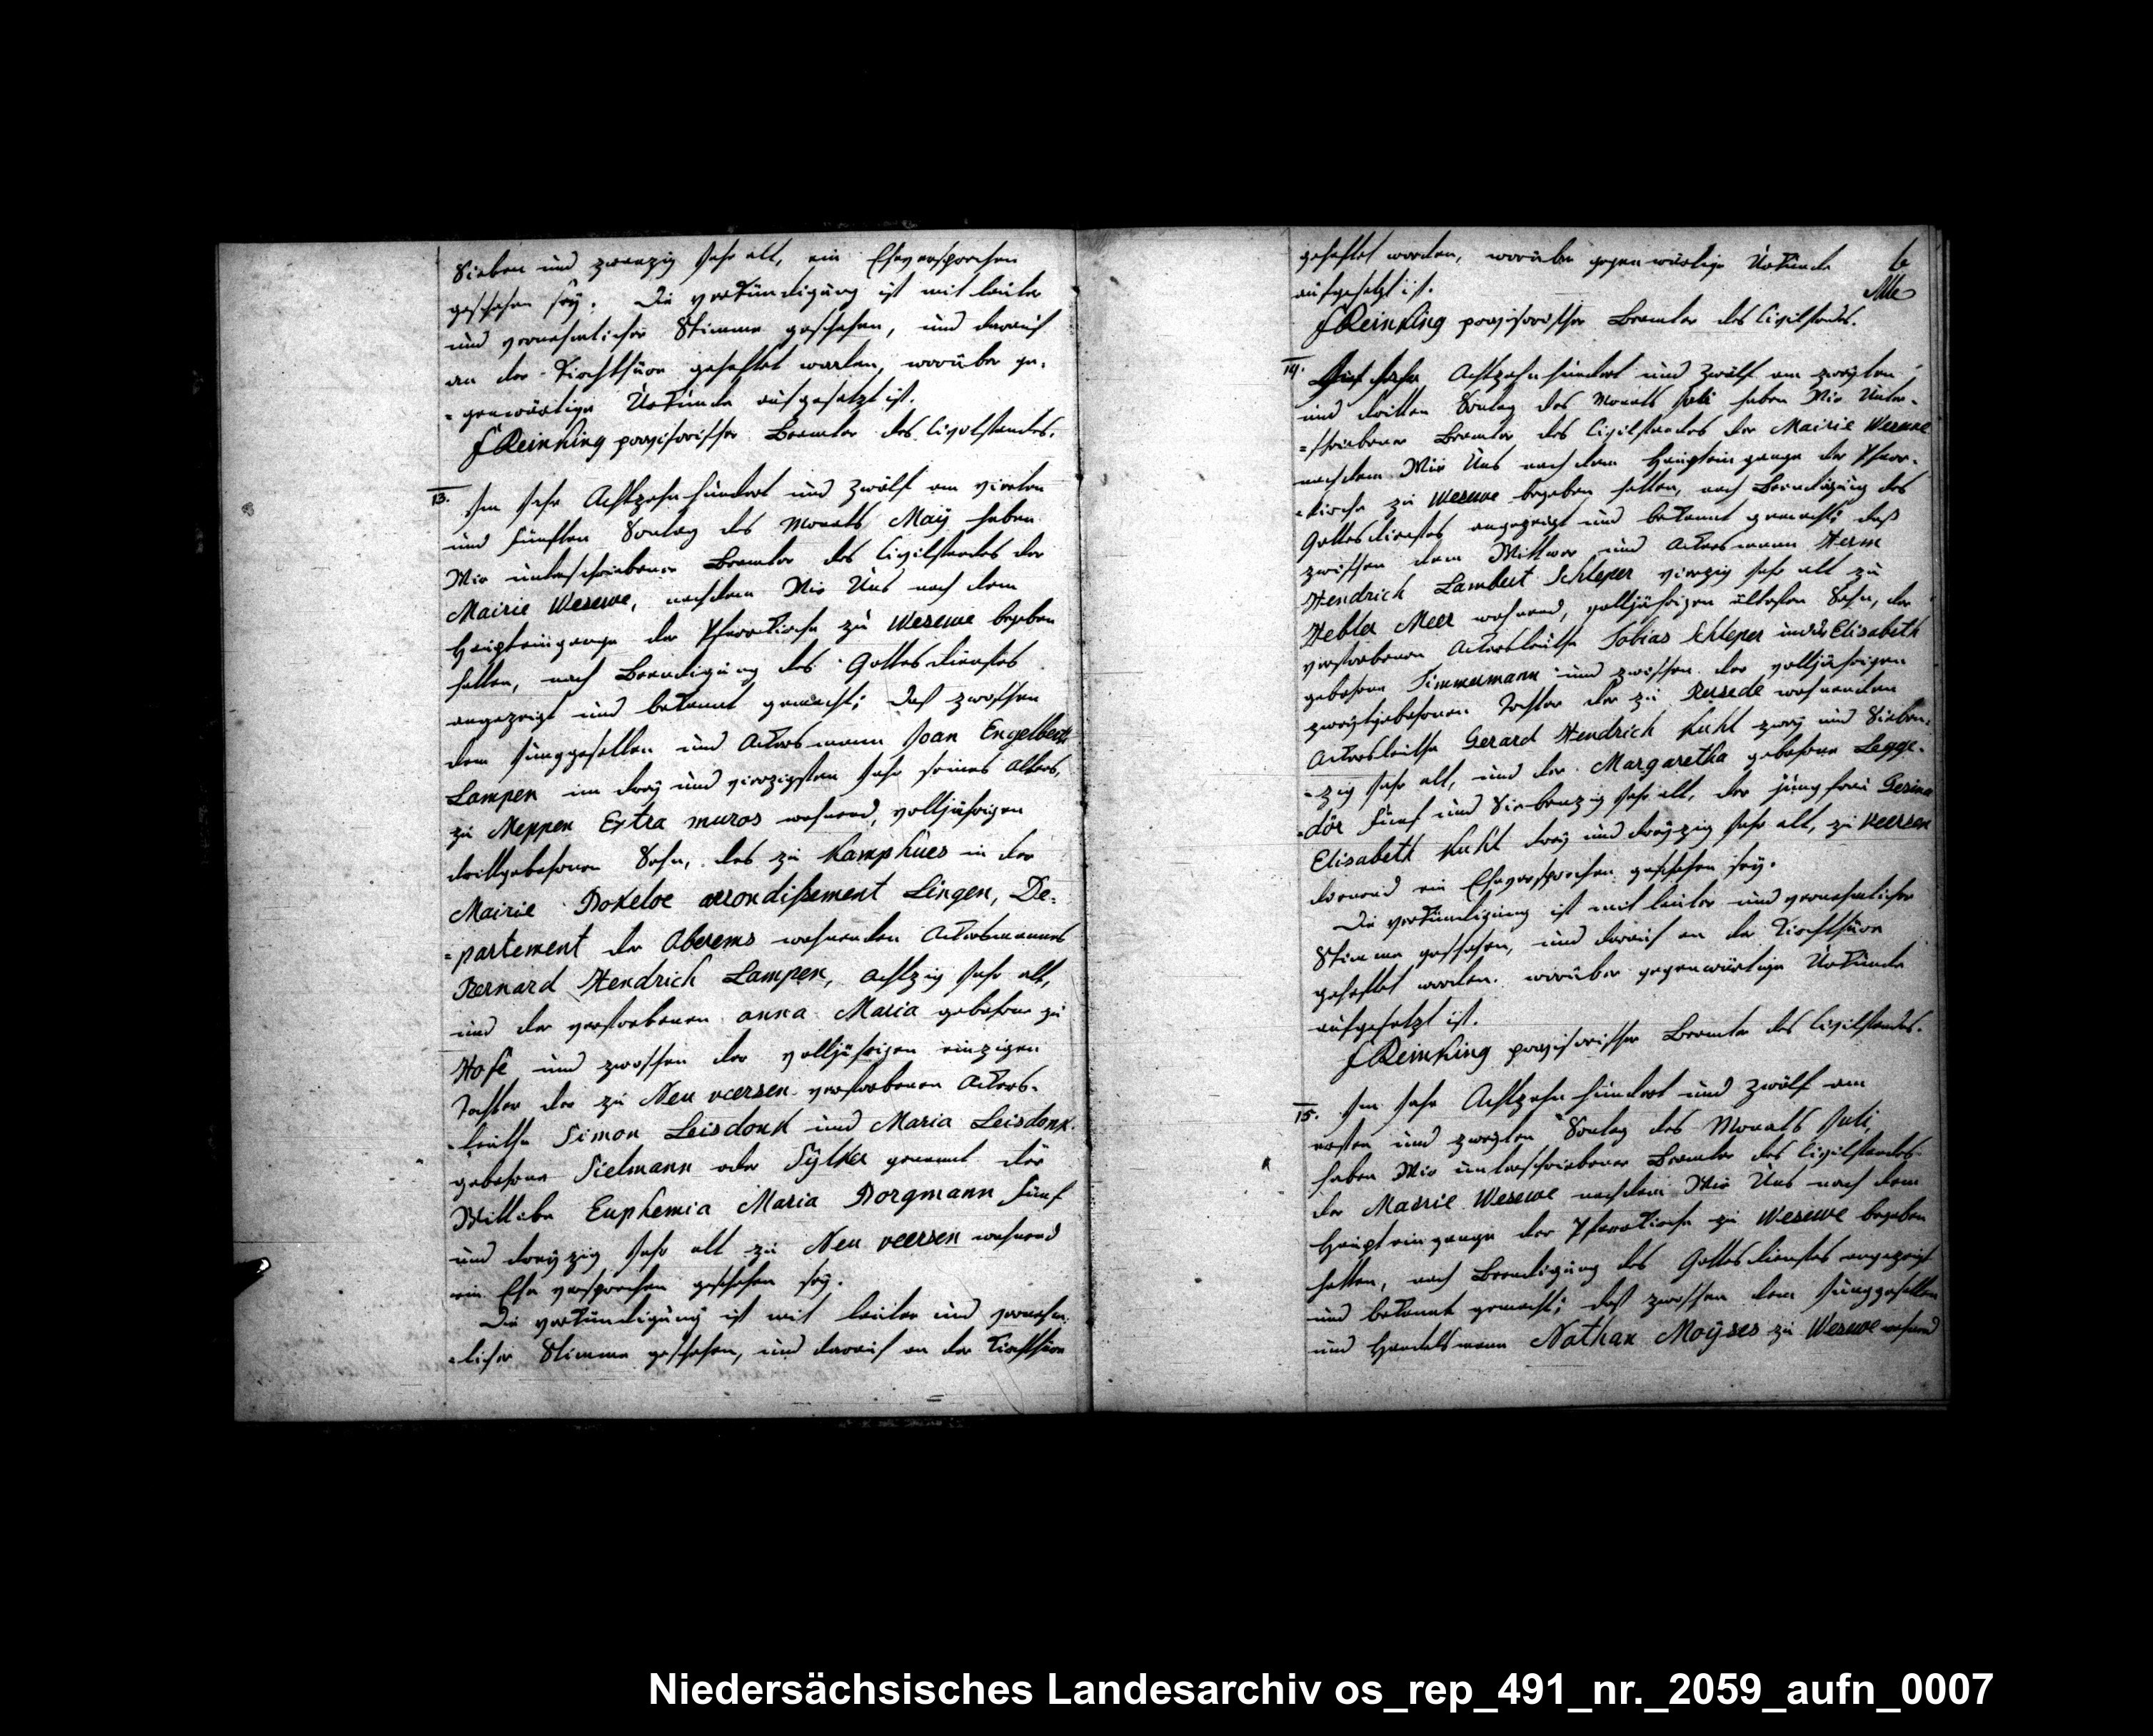 Sieben und zwanzig Jahr alt, ein Eheversprechen
geschehen seÿ. Die verkündigung ist mit lauter
und vernehmlicher Stimme geschehen, und darauf
an der Kirchthüre geheftet worden, worüber ge-
=genwärtige Urkunde aufgesetzt ist.
F Reinking provisorischer Beamter des Civilstandes.
13. Im Jahr Achtzehn hundert und Zwölf am vierten
und fünften Sontag des Monats Maÿ haben
Wir unterschriebener Beamter des Civilstandes der
Mairie Wesuwe, nachdem Wir Uns nach dem
Haupteingange der Pfarrkirche zu Wesuwe begeben
hatten, nach Beendigung des Gottesdienstes
angezeigt und bekannt gemacht; daß zwischen
dem Junggesellen und Ackersmann Joan Engelbert
Lampen im dreÿ und vierzigsten Jahr seines Alters,
zu Meppen Extra muros wohnend, volljährigen
drittgebohrnen Sohn, des zu Kamphues in der
Mairie Bokeloe arrondißement Lingen, De-
=partement der Oberems wohnenden Ackersmannes
Bernard Hendrich Lampen, achtzig Jahr alt,
und der verstorbenen Anna Maria gebohrne zu
Hofe und zwischen der volljährigen einzigen
Tochter der zu Neu veersen verstorbenen Ackers-
-leuthe Simon Leisdonk und Maria Leisdonk
gebohrne Tielmann oder Sÿlker genannt der
Wittibe Euphemia Maria Borgmann fünf
und dreÿzig Jahr alt zu Neu veersen wohnend
ein Ehe versprechen geschehen seÿ.
Die verkündigung ist mit lauter und vernehm-
-licher Stimme geschehen, und darauf an der Kirchthüre
geheftet worden, worüber gegenwärtige Urkunde
6
aufgesetzt ist.
F Reinking provisorischer Beamter des Civilstandes.
14. Achtzehn hundert und Zwölf am zweÿten
und dritten Sontag des Monats Juli haben Wir Unter-
=schriebener Beamter des Civilstandes der Mairie Wesuwe
nachdem Wir Uns nach dem Haupteingange der Pfarr-
-kirche zu Wesuwe begeben hatten, nach Beendigung des
Gottesdienstes angezeigt und bekannt gemacht; daß
zwischen dem Wittwer und Ackersmann Herm
Hendrich Lambert Schleper vierzig Jahr alt zu
Hebler Meer wohnend, volljährigen ältesten Sohn, der
verstorbenen Ackersleuthe Tobias Schleper und der Elisabeth
gebohrne Timmermann und zwischen der volljährigen
zweÿtgebohrnen Tochter der zu Rusede wohnenden
Ackersleuthe Gerard Hendrich Kuhl zweÿ und Sieben-
-zig Jahr alt, und der Margaretha gebohrne Legge-
-dör fünf und Siebenzig Jahr alt, der Jungfrau Gesina
Elisabeth Kuhl dreÿ und dreÿzig Jahr alt, zu veersen
dienend ein Eheversprechen geschehen seÿ.
Die verkündigung ist mit lauter und vernehmlicher
Stimme geschehen, und darauf an der Kirchthüre
geheftet worden. worüber gegenwärtige Urkunde
aufgesetzt ist.
F Reinking provisorischer Beamter des Civilstandes.
15. Im Jahr Achtzehn hundert und Zwölf am
ersten und zweÿten Sontag des Monats Juli,
haben Wir unterschriebener Beamter des Civilstandes
der Mairie Wesuwe nachdem Wir Uns nach dem
Haupteingange der Pfarrkirche zu Wesuwe begeben
hatten, nach Beendigung des Gottesdienstes angezeigt
und bekannt gemacht; daß zwischen dem Junggesellen
und Handelsmann Nathan Moÿses zu Wesuwe wohnend
Niedersächsisches Landesarchiv os_rep_491_nr._2059_aufn_0007